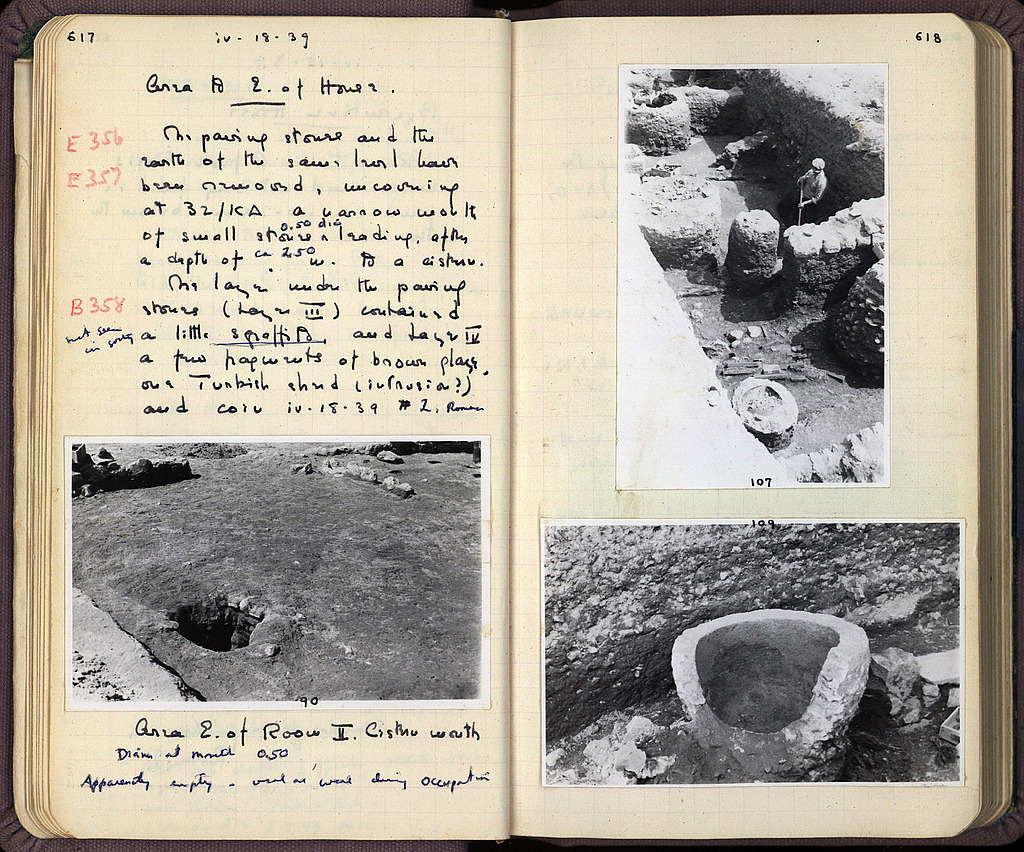 617
iv-18-39
Area to E. of House.
E 356
The paving stones and the
earth of the same level have
E 357
been removed, uncovering
at 32/KA a narrow mouth
of small stones 0.50 dia leading, after
a depth of ca 2.50 m. to a cistern.
The layer under the paving
B 358
stones (Layer III) contained
not seen
in sorting
a little sgraffito and Layer IV
a few fragments of brown glaze,
one Turkish sherd (intrusion?)
and coin iv-18-39 #2. Roman
90
Area E. of Room II. Cistern mouth
Diam at mouth 0.50
Apparently empty - used as during Occupation
618
107
109